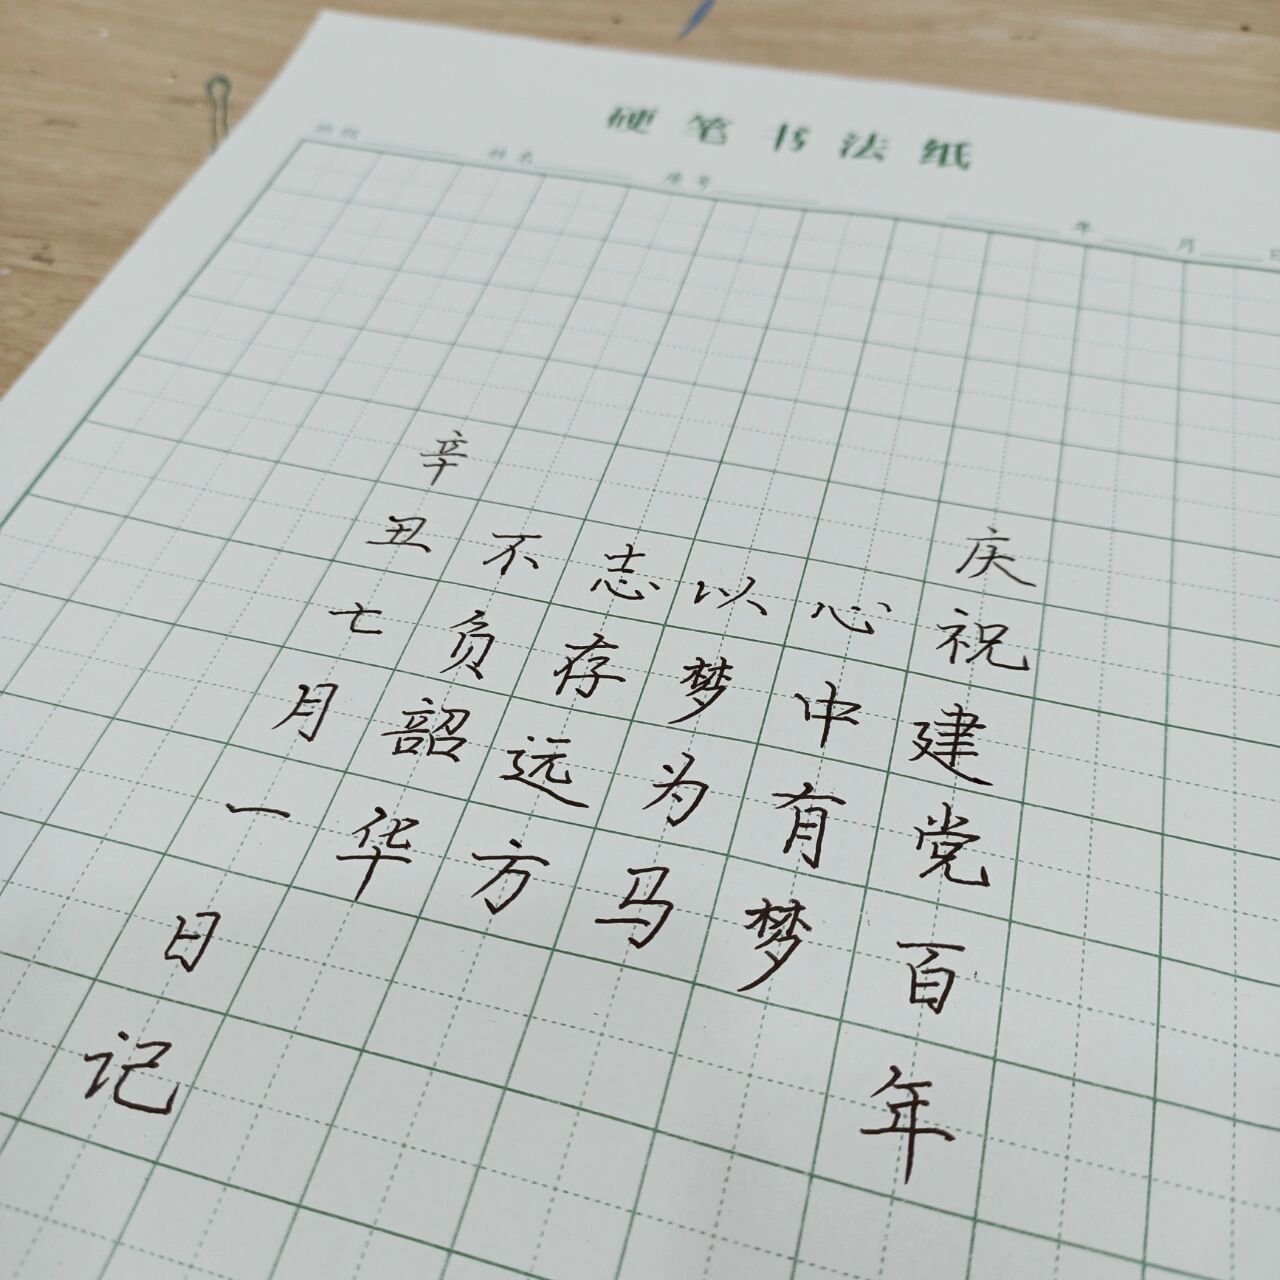 硬笔书法纸
班别 姓名 座号 年 月 日
庆祝建党百年
心中有梦
以梦为马
志存远方
不负韶华
辛丑七月一日记